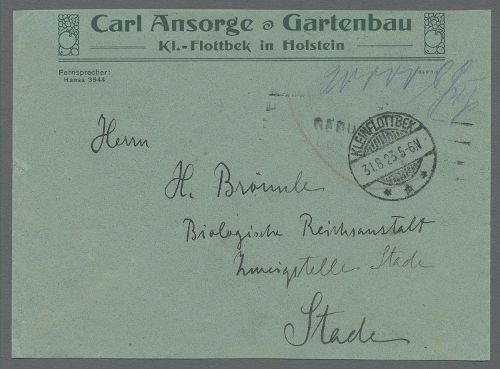 Carl Ansorge Gartenbau
Kl.-Flottbek in Holstein
Fernsprecher:
Hansa 3944
KLEINFLOTTBEK
31.8.23.5-6.N
Herrn
H.
Biologische Reichsanstalt
Zweigstelle Stade
Stade